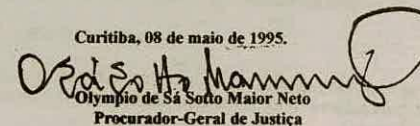 Curitiba, 08 de maio de 1995.
Olympio de Sá Sotto Maior Neto
Procurador-Geral de Justiça